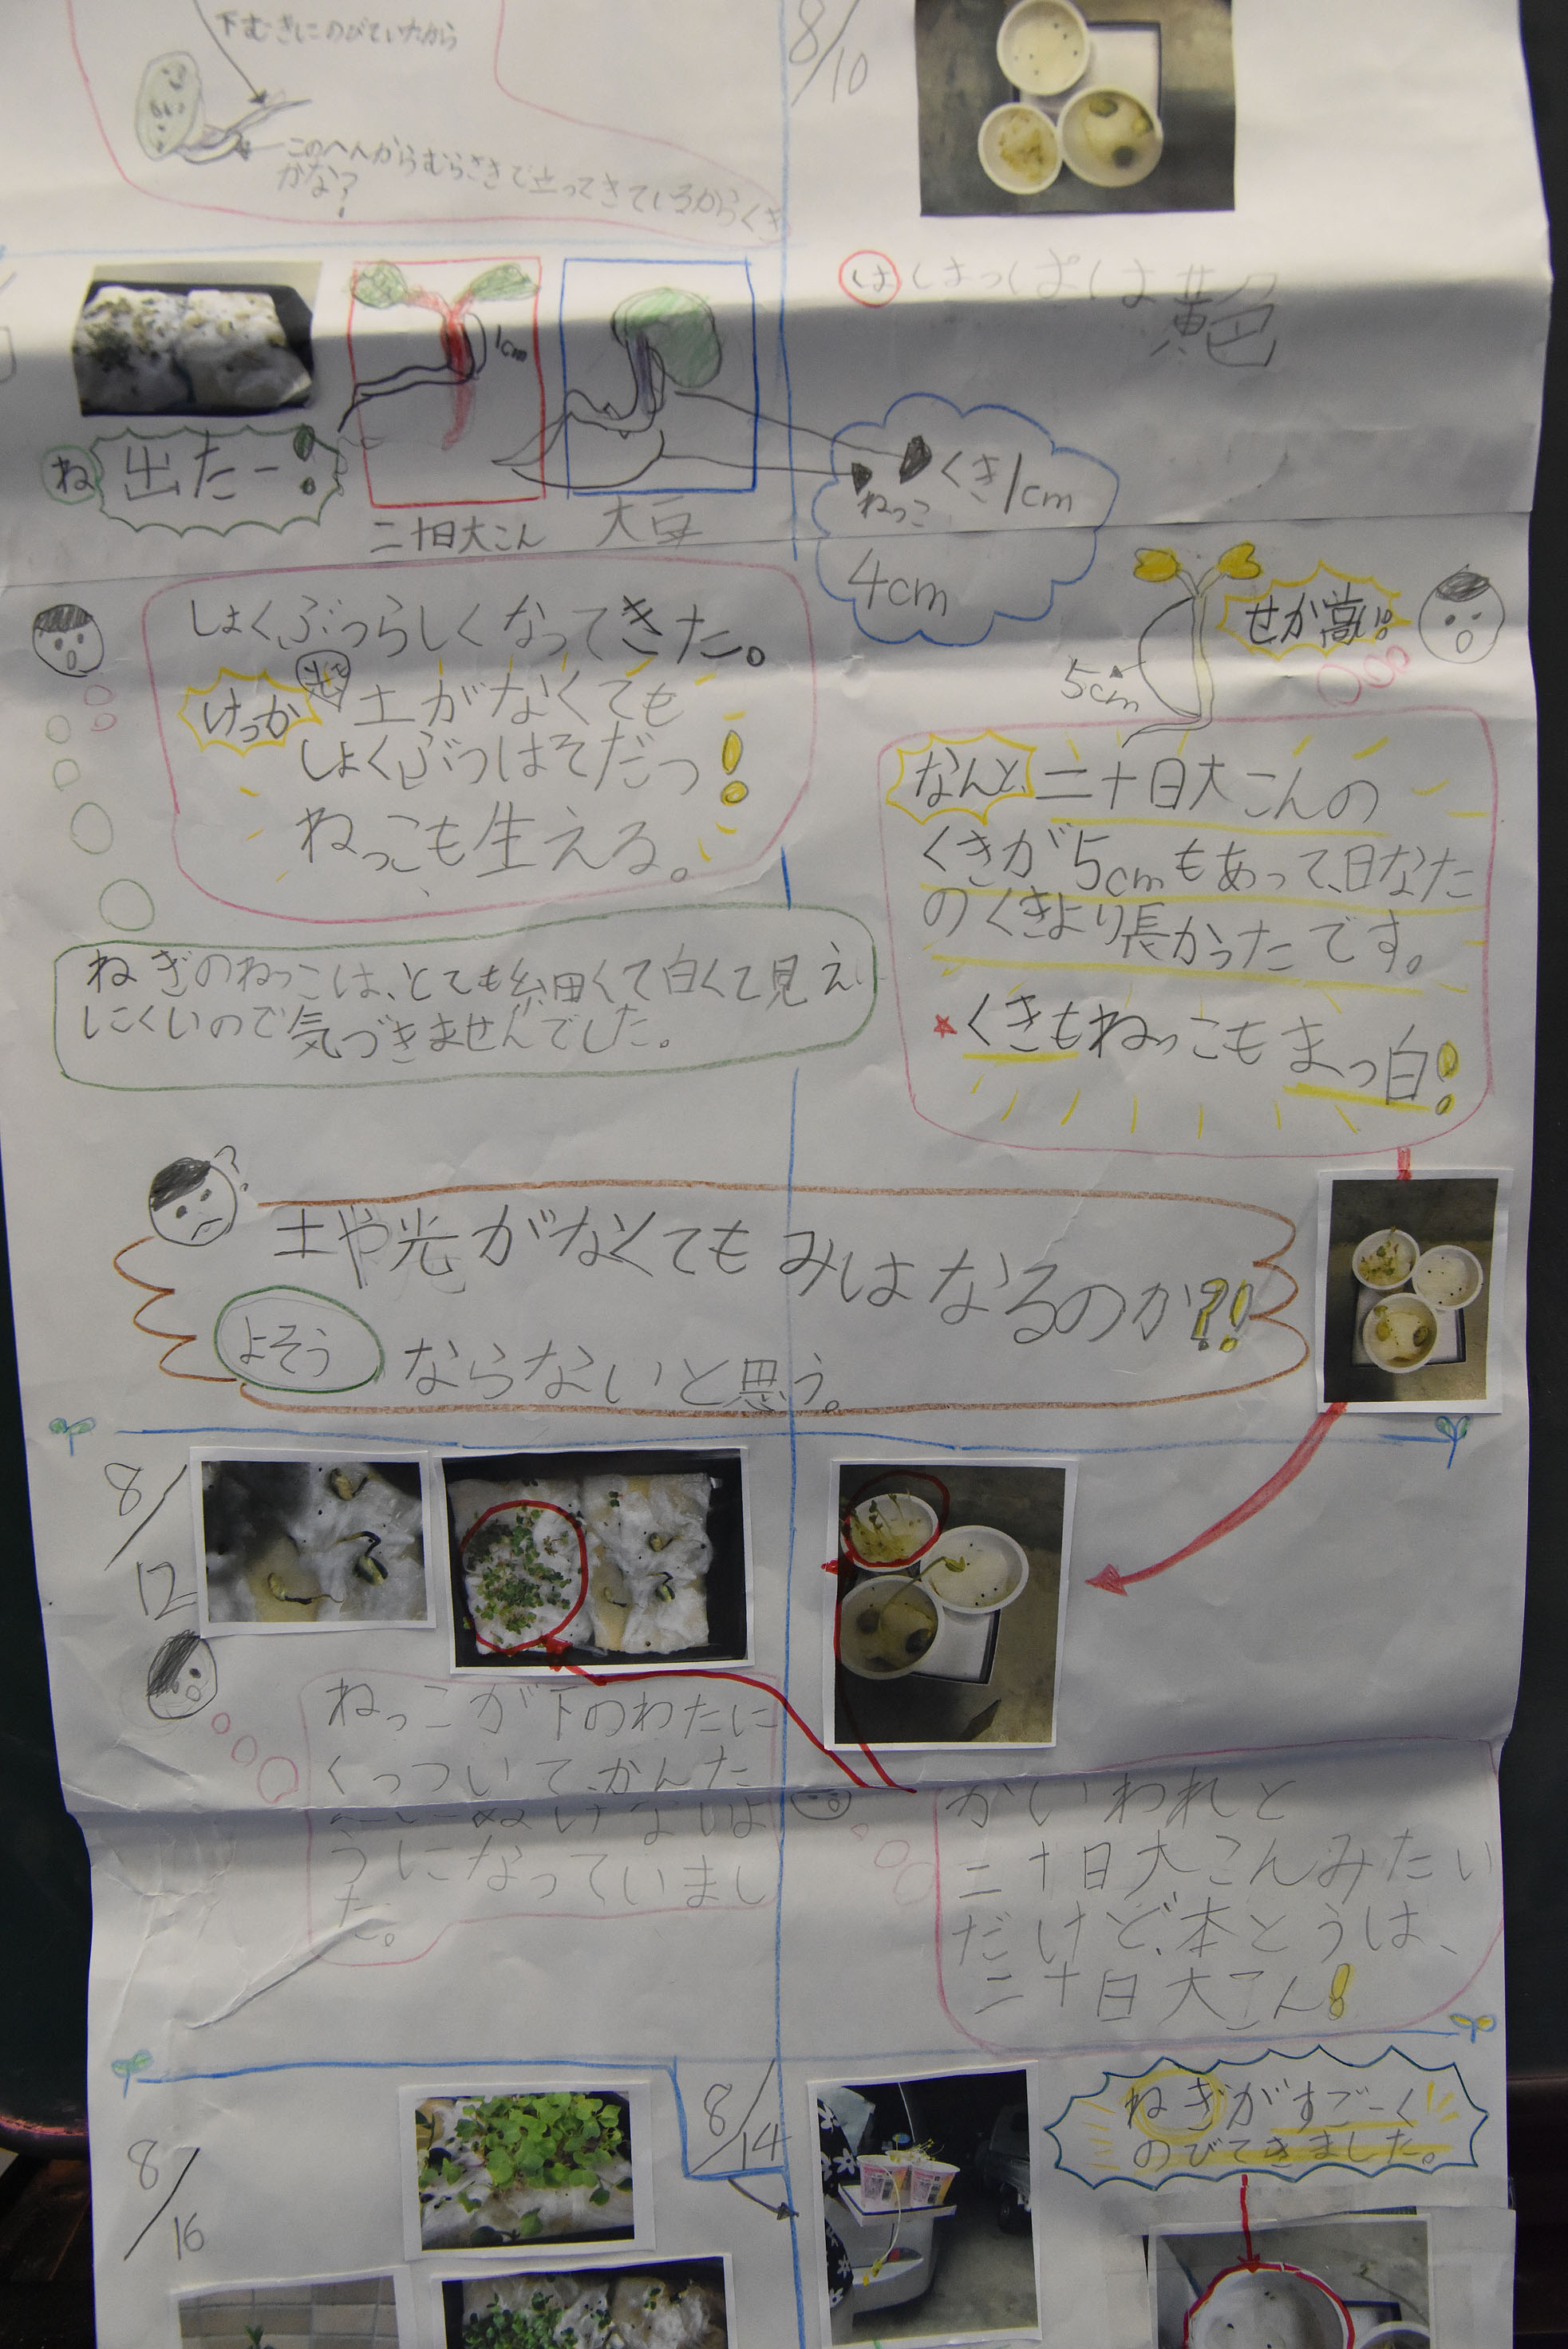 下むきにのびていたから
このへんからむらさきで立ってきているからくき
かな?
8/10
は しはっぱは黄色
1cm
ね 出たー!
二十日大こん
大豆
くき1cm
ねっこ
4cm
しょくぶつらしくなってきた。
けっか 土がなくても
しょくぶつはそだつ!
ねっこも生える。
ねぎのねっこは、とても細くて白くて見え
にくいので気づきませんでした。
せが高い!
5cm
なんと、二十日大こんの
くきが5cmもあって、日なた
のくきより長かったです。
★くきもねっこもまっ白!
土や光がなくてもみはなるのか?!
よそう ならないと思う。
8/12
ねっこが下のわたに
くっついて、かんた
んにぬけないよ
うになっていまし
た。
かいわれと
二十日大こんみたい
だけど、本とうは、
二十日大こん!
8/14
ねぎがすごーく
のびてきました。
8/16